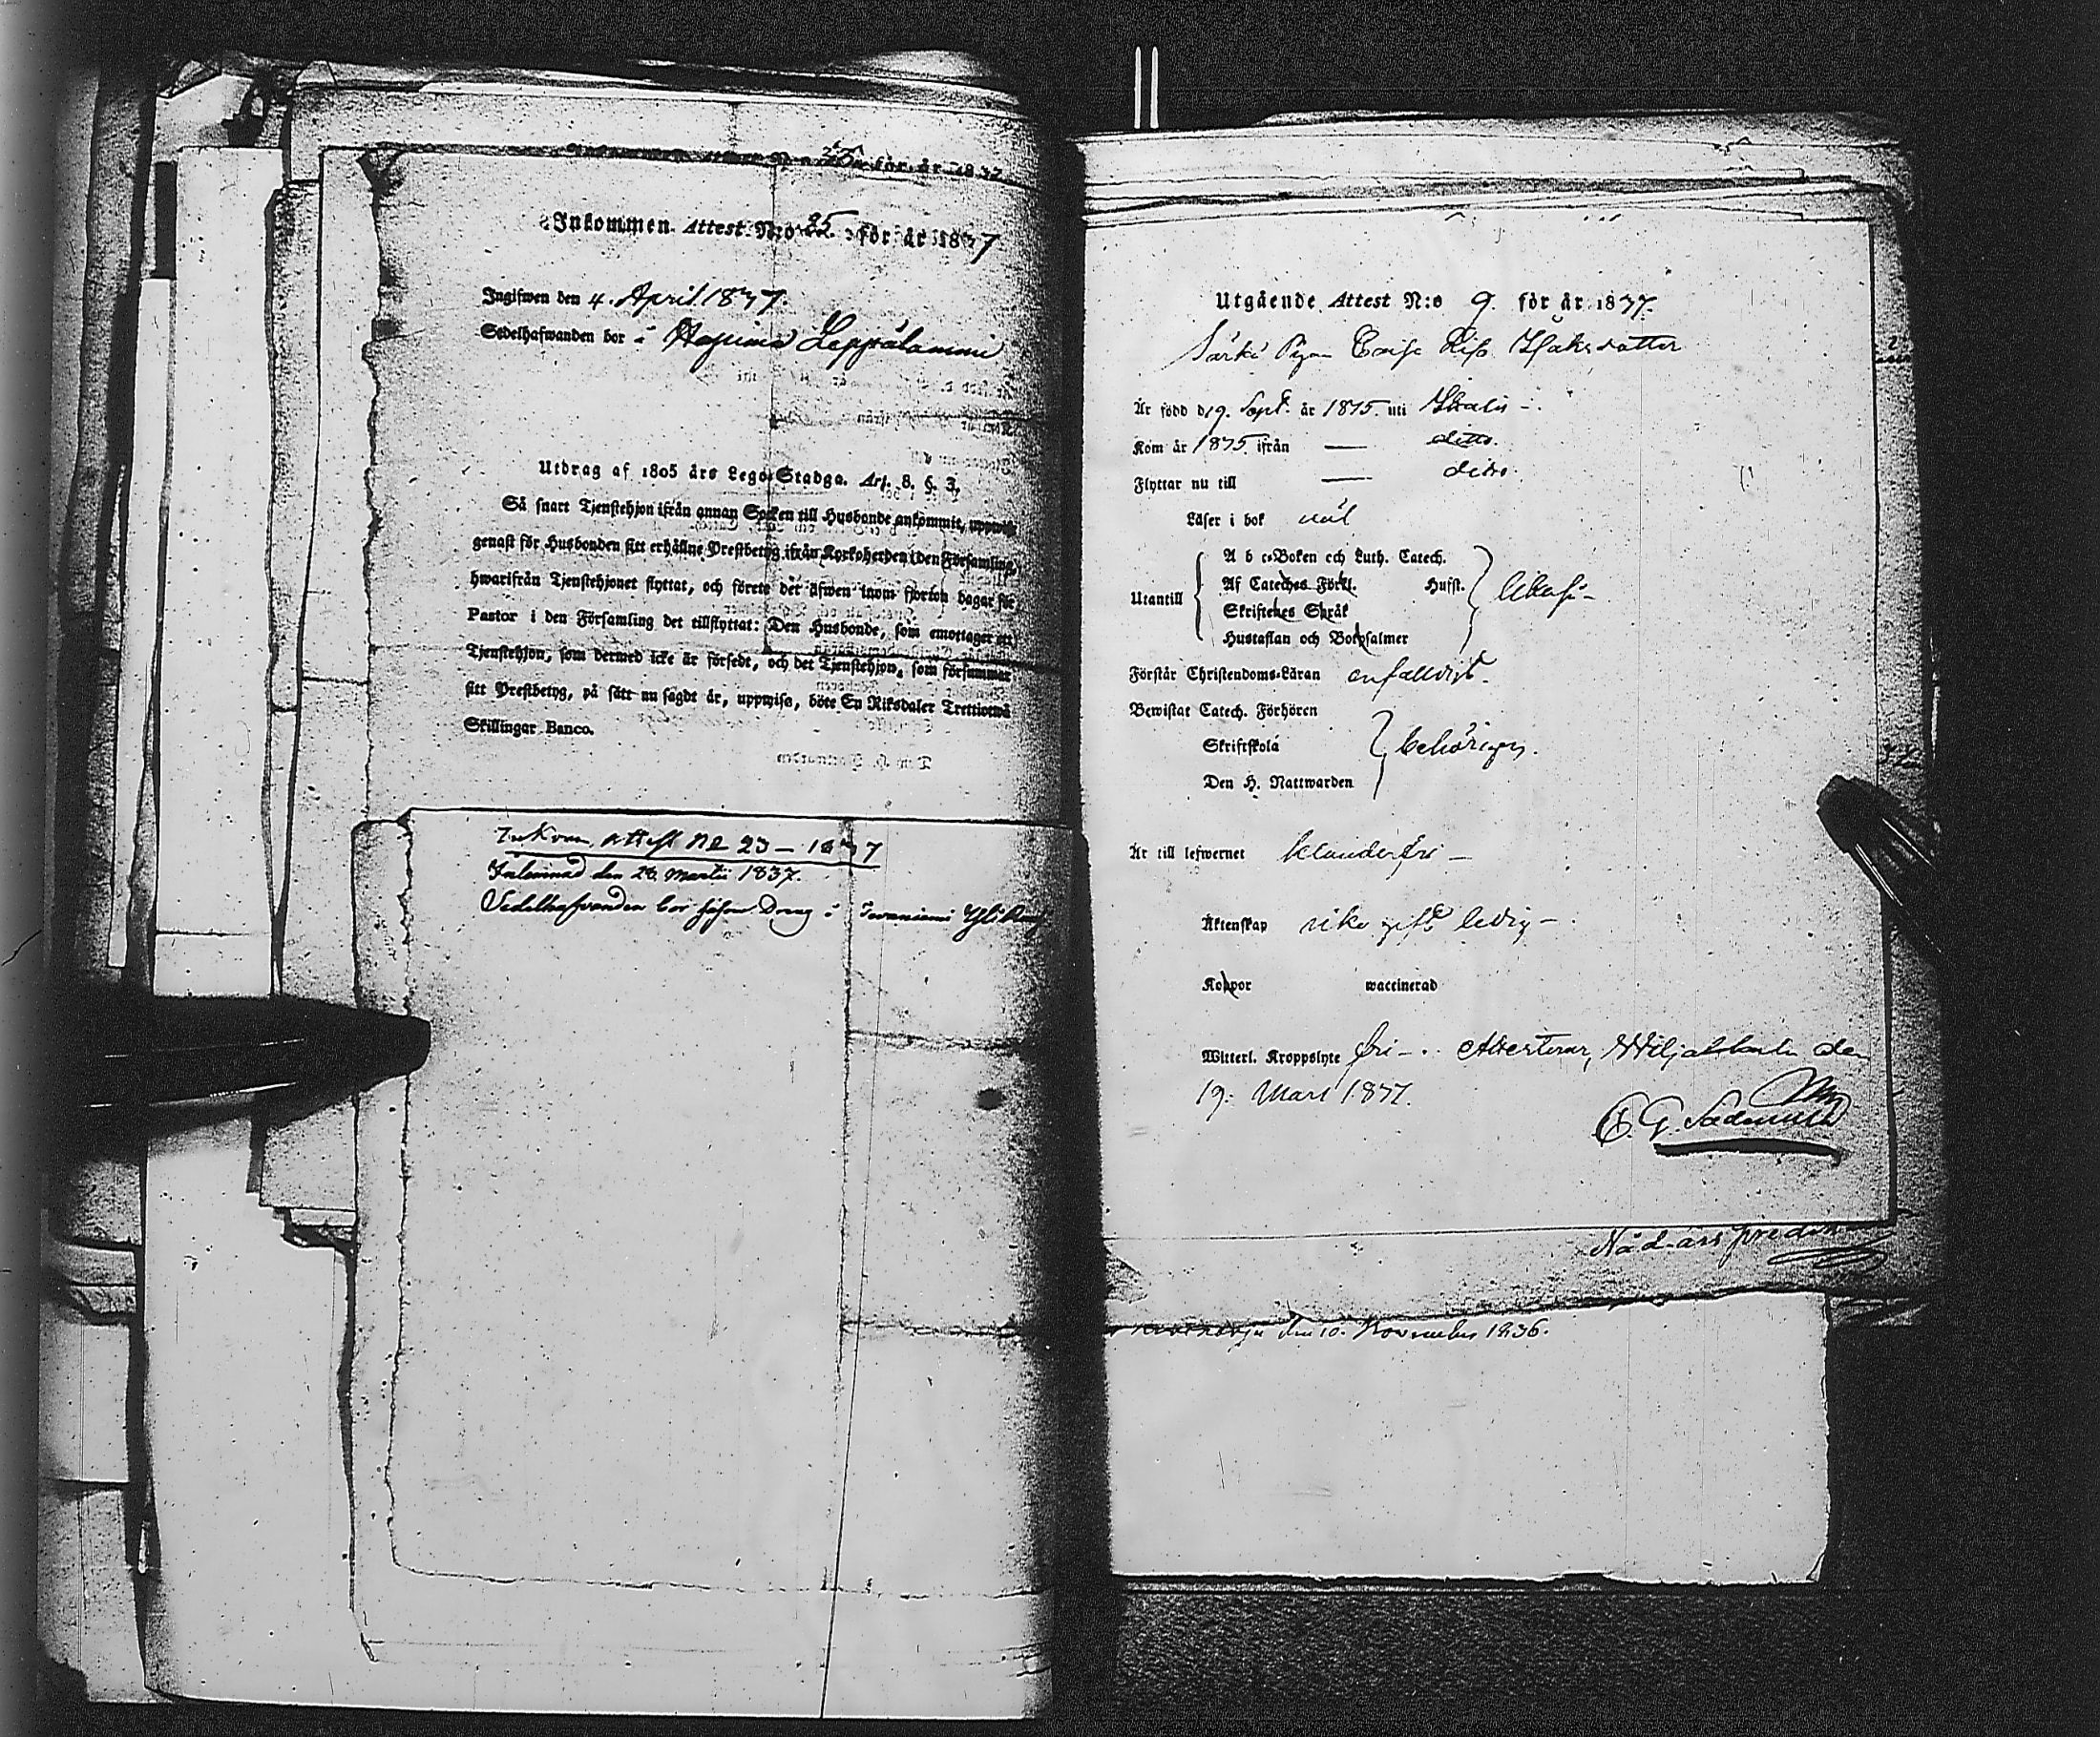 Inkommen Attest N:o 25 för år 1837
Ingifwen den 4. April 1837.
Sedelhafwanden bor i
Utdrag af 1805 års Lego-Stadga. Art. 8. §. 3.
Så snart Tjenstehjon ifrån annan Socken till Husbonde ankommit, uppwise
genast för Husbonden sitt erhållne Prestbetyg ifrån Kyrkoherden i den Församling,
hwarifrån Tjenstehjonet flyttat, och förete det äfwen inom fjorton dagar för
Pastor i den Församling det tillflyttat: Den Husbonde, som emottager ett
Tjenstehjon, som dermed icke är försedt, och det Tjenstehjon, som försummar
sitt Prestbetyg, på sätt nu sagdt är, uppwisa, böte En Riksdaler Trettiotwå
Skillingar Banco.
Inkom. Attest No 23 – 1837
Inlemnad den 28. Martii 1837.
Sedelhafvanden bor såsom Dreng i
Utgående Attest N:o 9. för år 1837.
Särki Pigan Caisa Lisa Isaksdotter
Är född d. 19. Sept. år 1815. uti
Kom år 1835 ifrån — ditto.
Flyttar nu till — ditto.
Läser i bok väl
Utantill
A b c-Boken och Luth. Catech.
Af Cateches Förkl. Hust.
Skriftenes Språk
Hustaflan och Botpsalmer
likaså –
Förstår Christendoms-Läran enfaldigt.
Bewistat Catech. Förhören
Skriftskola behörigen.
Den H. Nattwarden
Är till lefwernet klanderfri –
Äktenskap ledig –
Koppor waccinerad
Witterl. Kroppslyte fri – Attesterar, den
19. Mars 1837.
den 10. November 1836.